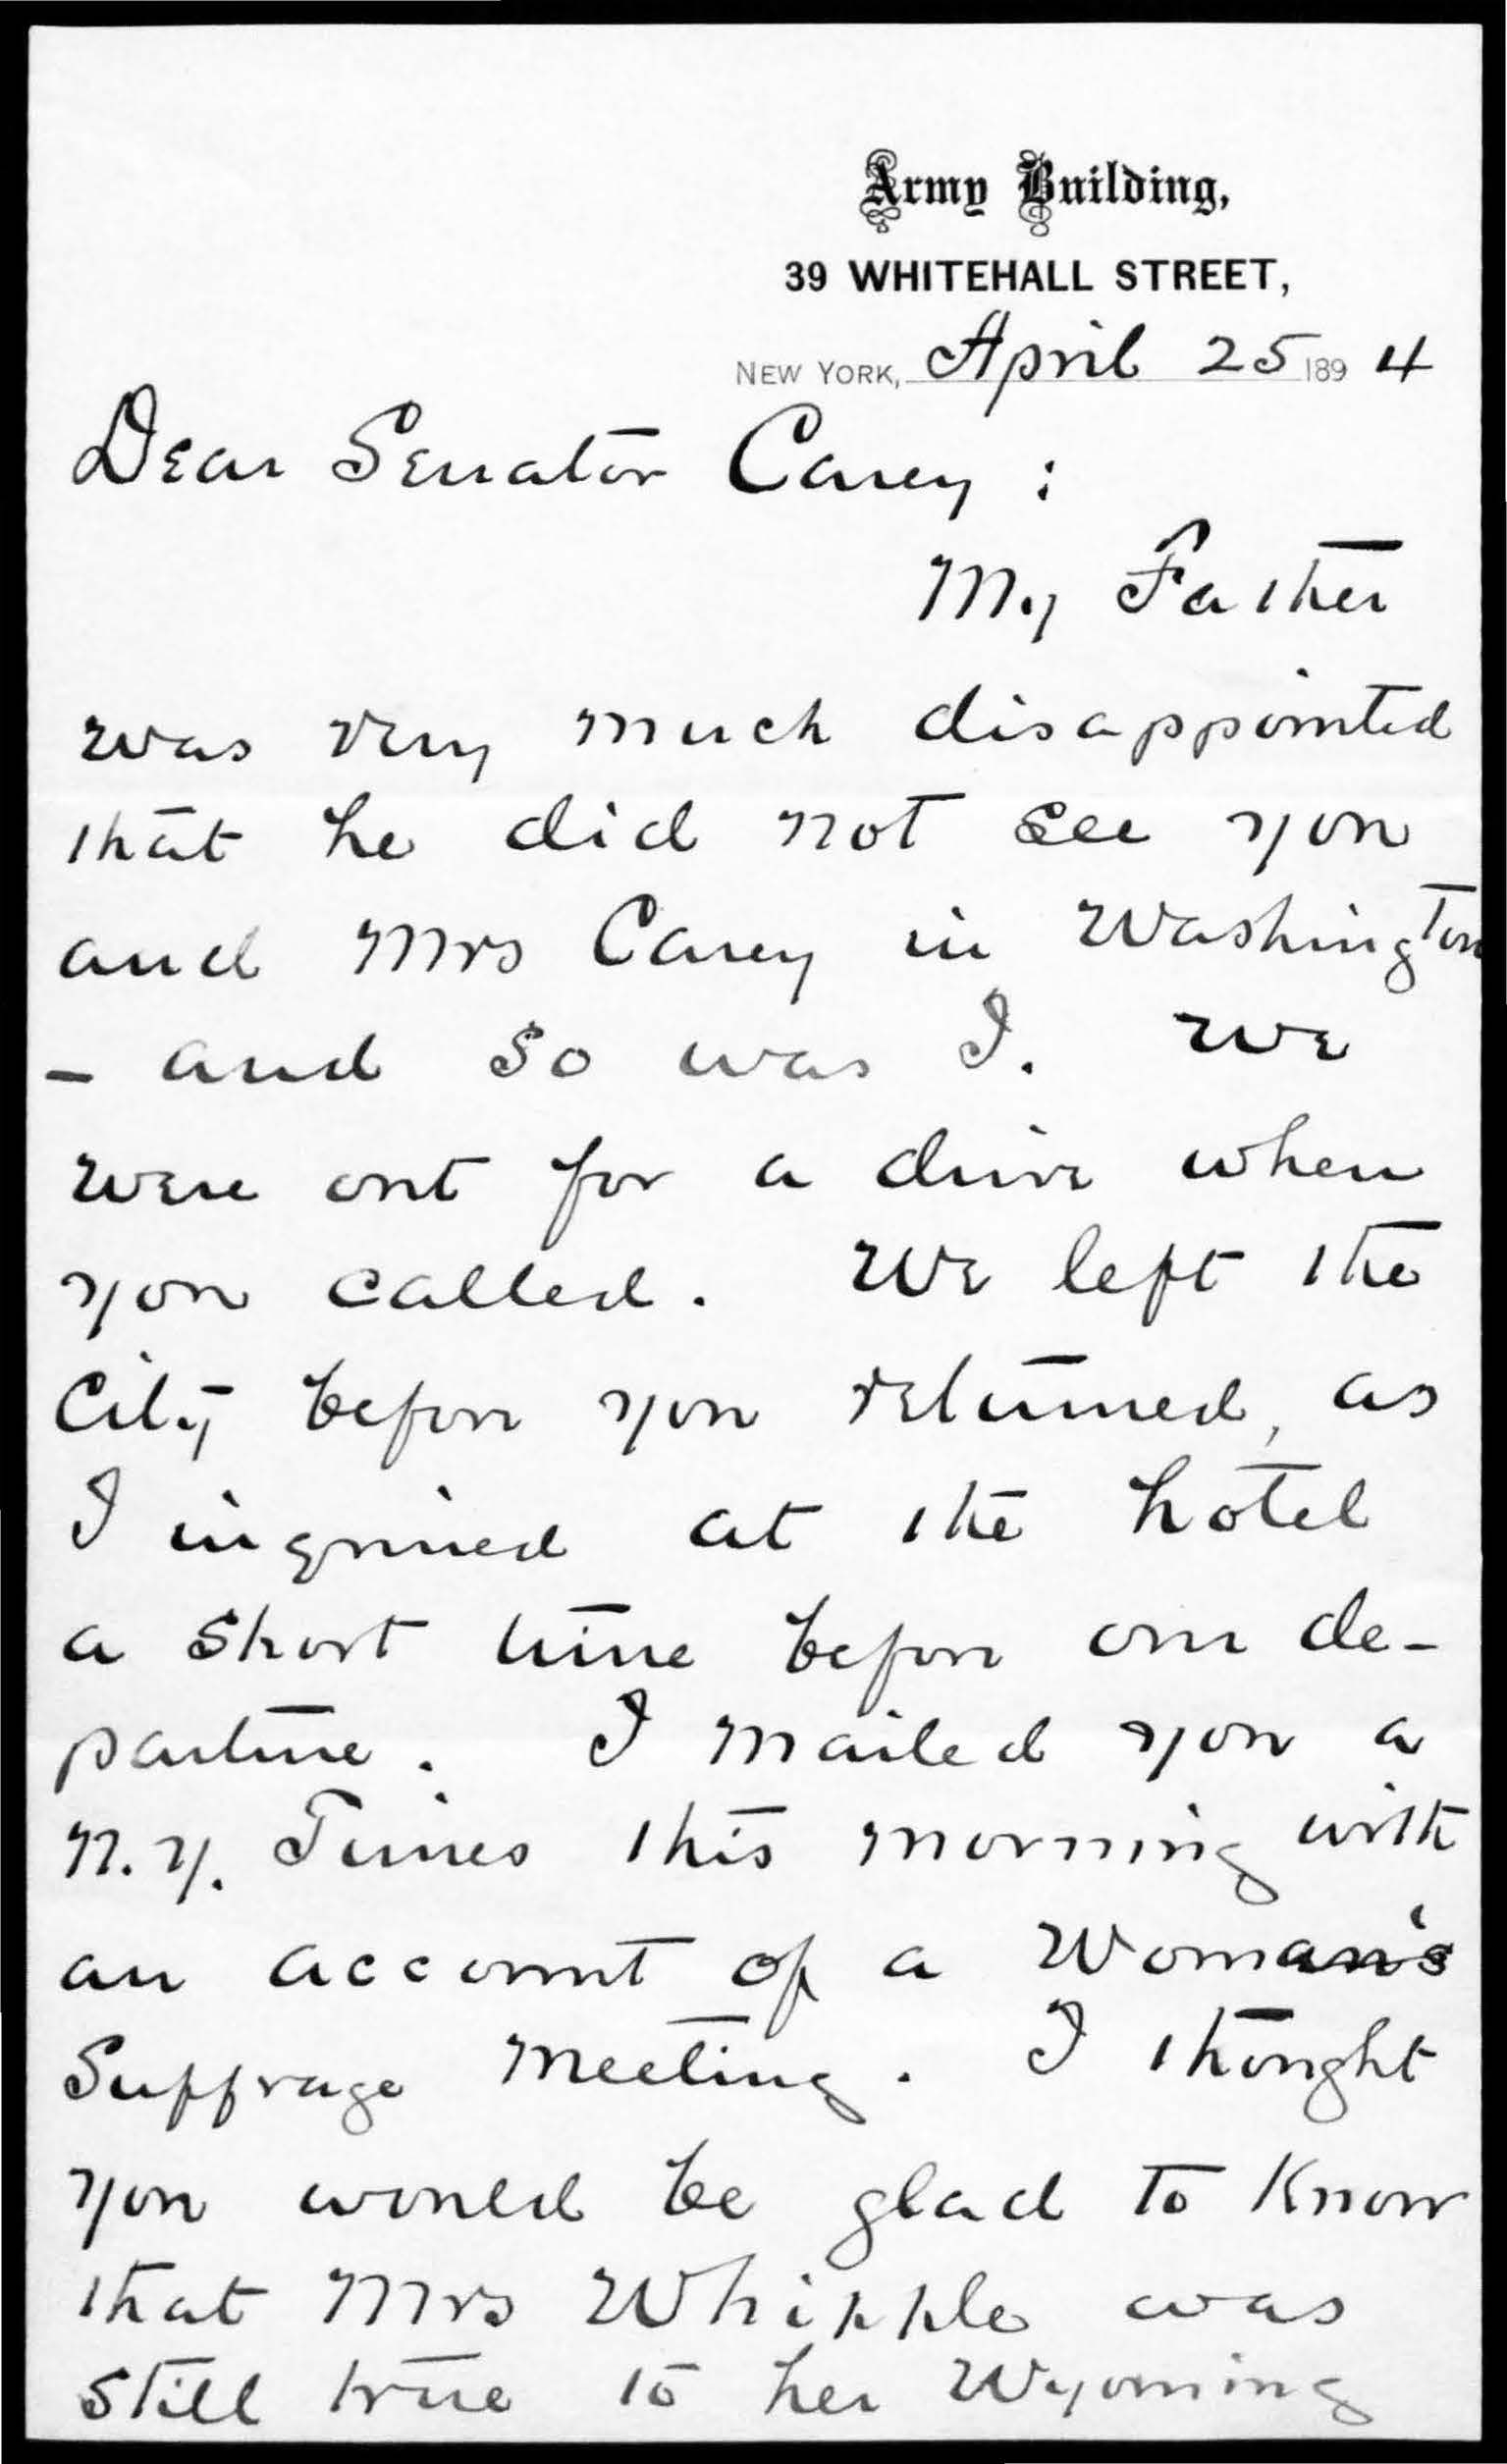 Army Building,
39 WHITEHALL STREET,
NEW YORK, April 25 1894
Dear Senator Carey :
My Father
was very much disappointed
that he did not see you
and Mrs Carey in Washington
- and so was I. We
were out for a drive when
you called. We left the
City before you returned, as
I inquired at the hotel
a short time before our de-
parture. I mailed you a
N.Y. Times this morning with
an account of a Woman's
Suffrage meeting. I thought
you would be glad to know
that Mrs Whipple was
still true to her Wyoming